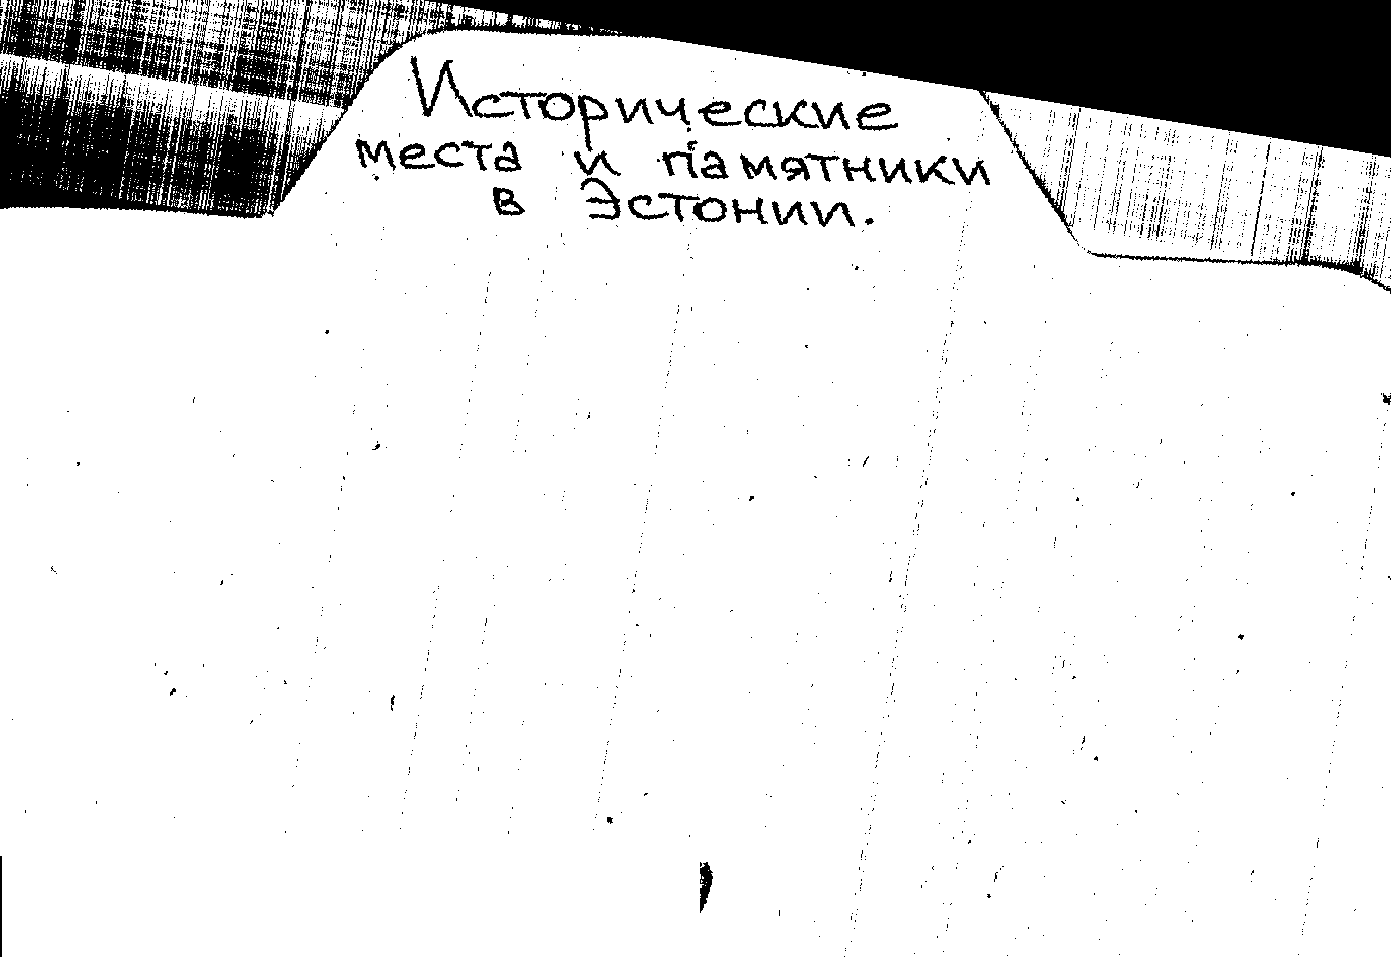 Исторические
места и памятники
в Эстонии.